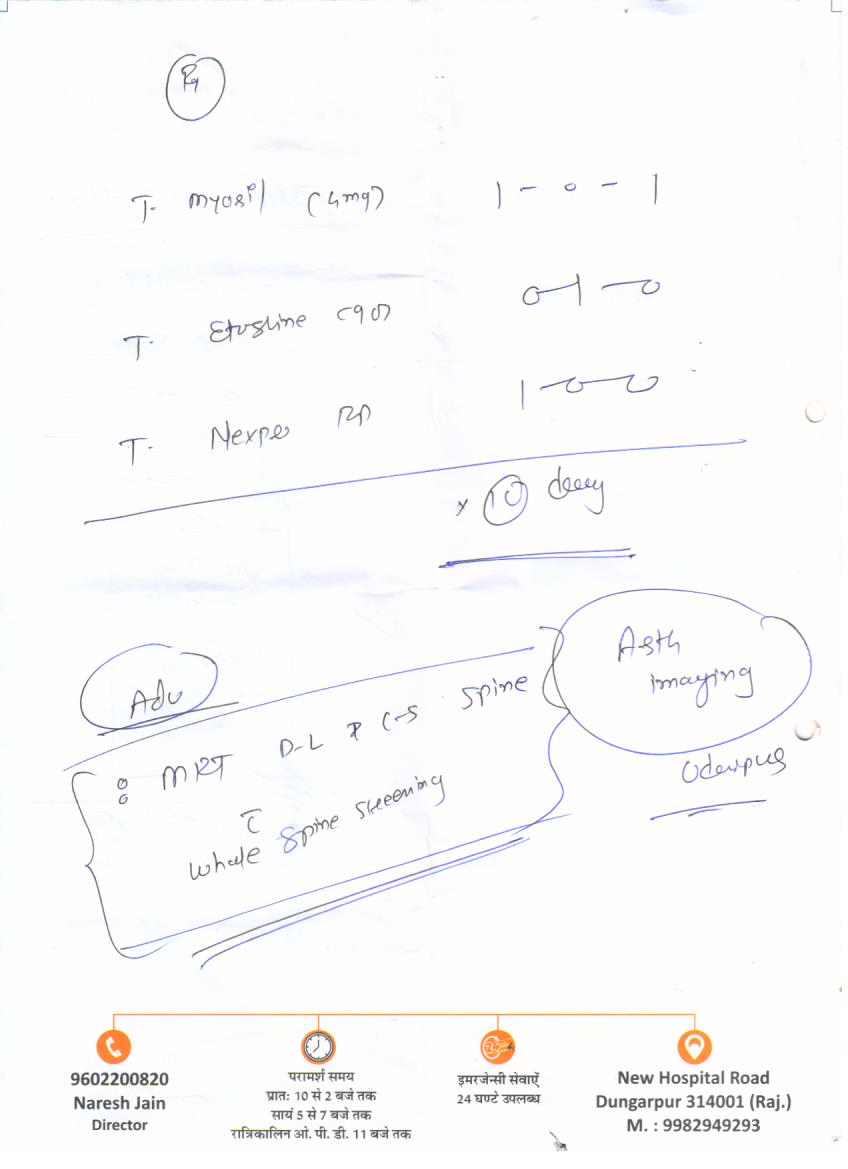 Rx
T. Myospil (4mg) 1 - 0 - 1
T. Etoshine (90) 0-1-0
T. Nexpro RD 1-0-0
x 10 day
Adv
MRI D-L & C-S Spine
c̄
whole spine screening
Asth
imaging
Udaipur
9602200820
Naresh Jain
Director
परामर्श समय
प्रातः 10 से 2 बजे तक
सायं 5 से 7 बजे तक
रात्रिकालिन ओ. पी. डी. 11 बजे तक
इमरजेन्सी सेवाऐं
24 घण्टे उपलब्ध
New Hospital Road
Dungarpur 314001 (Raj.)
M. : 9982949293